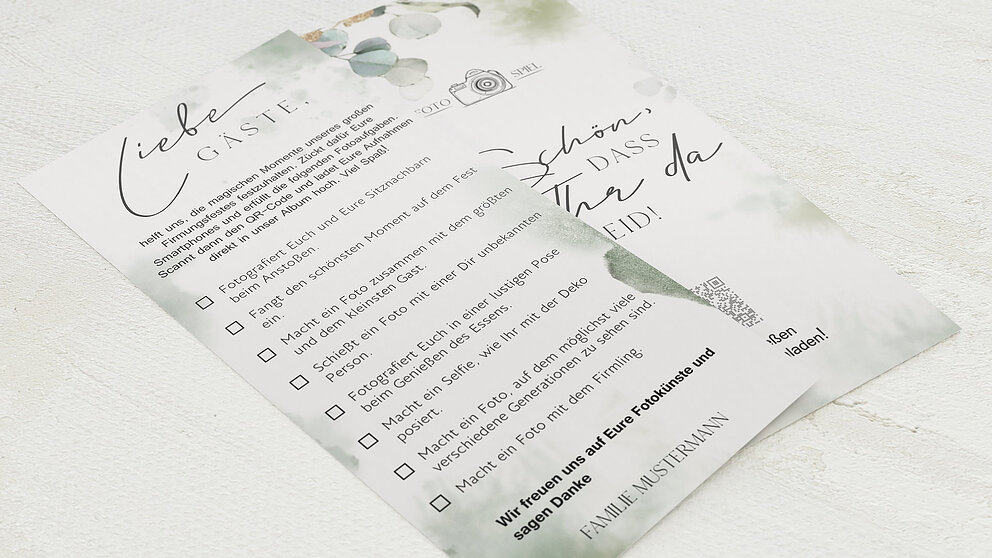 Liebe
GÄSTE,
helft uns, die magischen Momente unseres großen
Firmungsfestes festzuhalten. Zückt dafür Eure
Smartphones und erfüllt die folgenden Fotoaufgaben.
Scannt dann den QR-Code und ladet Eure Aufnahmen
direkt in unser Album hoch. Viel Spaß!
Fotografiert Euch und Eure Sitznachbarn
beim Anstoßen.
Fangt den schönsten Moment auf dem Fest
ein.
Macht ein Foto zusammen mit dem größten
und dem kleinsten Gast.
Schießt ein Foto mit einer Dir unbekannten
Person.
Fotografiert Euch in einer lustigen Pose
beim Genießen des Essens.
Macht ein Selfie, wie Ihr mit der Deko
posiert.
Macht ein Foto, auf dem möglichst viele
verschiedene Generationen zu sehen sind.
Macht ein Foto mit dem Firmling.
Wir freuen uns auf Eure Fotokünste und
sagen Danke
FAMILIE MUSTERMANN
OTO SPIEL
Schön,
DASS
Ihr da
EID!
ßen
laden!